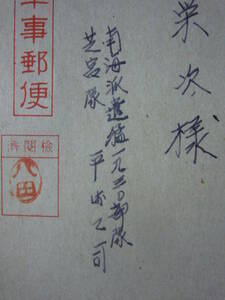 栄次様
南海派遣猛一九三〇部隊
芝宮隊
平 乙司
軍事郵便
検閲済